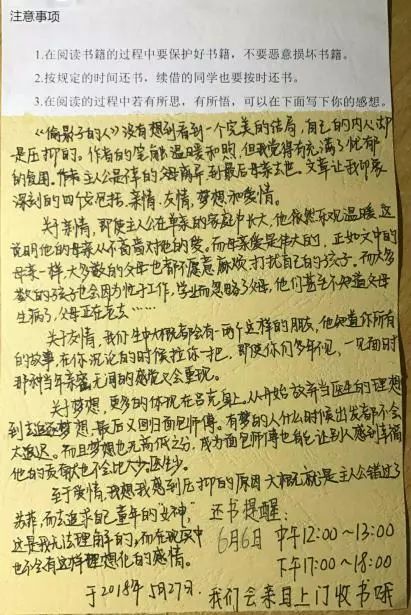 注意事项
1.在阅读书籍的过程中要保护好书籍，不要恶意损坏书籍。
2.按规定的时间还书，续借的同学也要按时还书。
3.在阅读的过程中若有所思，有所悟，可以在下面写下你的感想。
《偷影子的人》没有想到看到一个完美的结局，自己的内心却
是压抑的。作者的笔触温暖和煦，但我觉得有充满了忧郁
的氛围。主人公是的父母离异到最后母亲去世。文章让我印象
深刻的四个包括，亲情、友情，梦想和爱情。
关于亲情，即使主人公在单亲的家庭中长大，他依然乐观温暖，这
说明他的母亲从不吝啬对他的爱。而母亲爱是伟大的，正如文中的
母亲一样，大多数的父母也都不愿意麻烦、打扰自己的孩子，而大多
数的孩子也会因为忙于工作，学业而忽略了父母，他们甚至不知道父母
生病了，父母正在老去……
关于友情，我们生中大概都会有一两个这样的朋友，他知道你所有
的故事，在你沉沦的时候拉你一把，即使你们多年不见，一见面时
那种当年亲密无间的感觉又会重现。
关于梦想，更多的体现在吕克身上。从开始放弃当医生的理想
到去追逐梦想，最后又回归面包师傅。有梦的人什么时候出发都不会
太迟。而且梦想也无高低之分，成为面包师傅也能让别人感到幸福
他的贡献也不会比医生少。
至于爱情，我想我感到压抑的原因大概就是主人公错过了
苏菲，而去追求自己童年的"女神"，
这是我无法理解的，而在现实中
也不会有这样理想化的感情。
于2018年5月27日.
还书提醒：
6月6日 中午12:00~13:00
下午17:00~18:00
我们会来上门收书哦